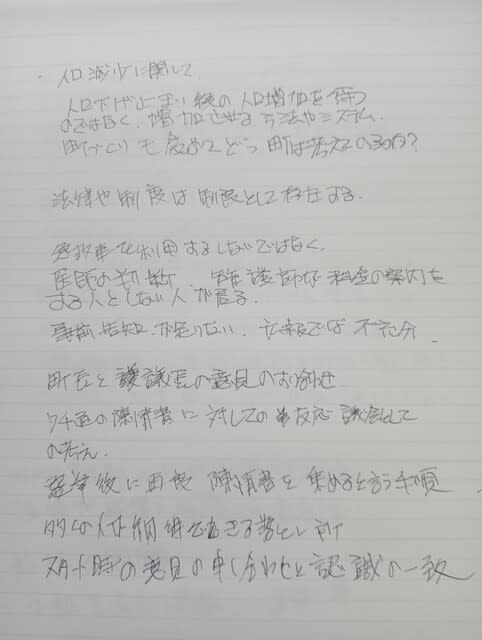 ・人口減少に関して
人口下げ止まり後の人口増加を待つ
のではなく、増加させる方法やシステム、
町づくりも含めてどう町は考えてるのか?
法律や制度は制度として存在する。
救急車を利用するしないではなく、
医師の判断、看護師が料金の案内を
する人としない人が居る。
事前告知が足りない、広報では不充分、
町長と議長の意見のすり合わせ
の陳情者に対しての反応 議会として
の考え、
選挙後に再度 陳情者を集めると言う手順
多くの人が納得できる
スタート時の意見の申し合わせと認識の一致